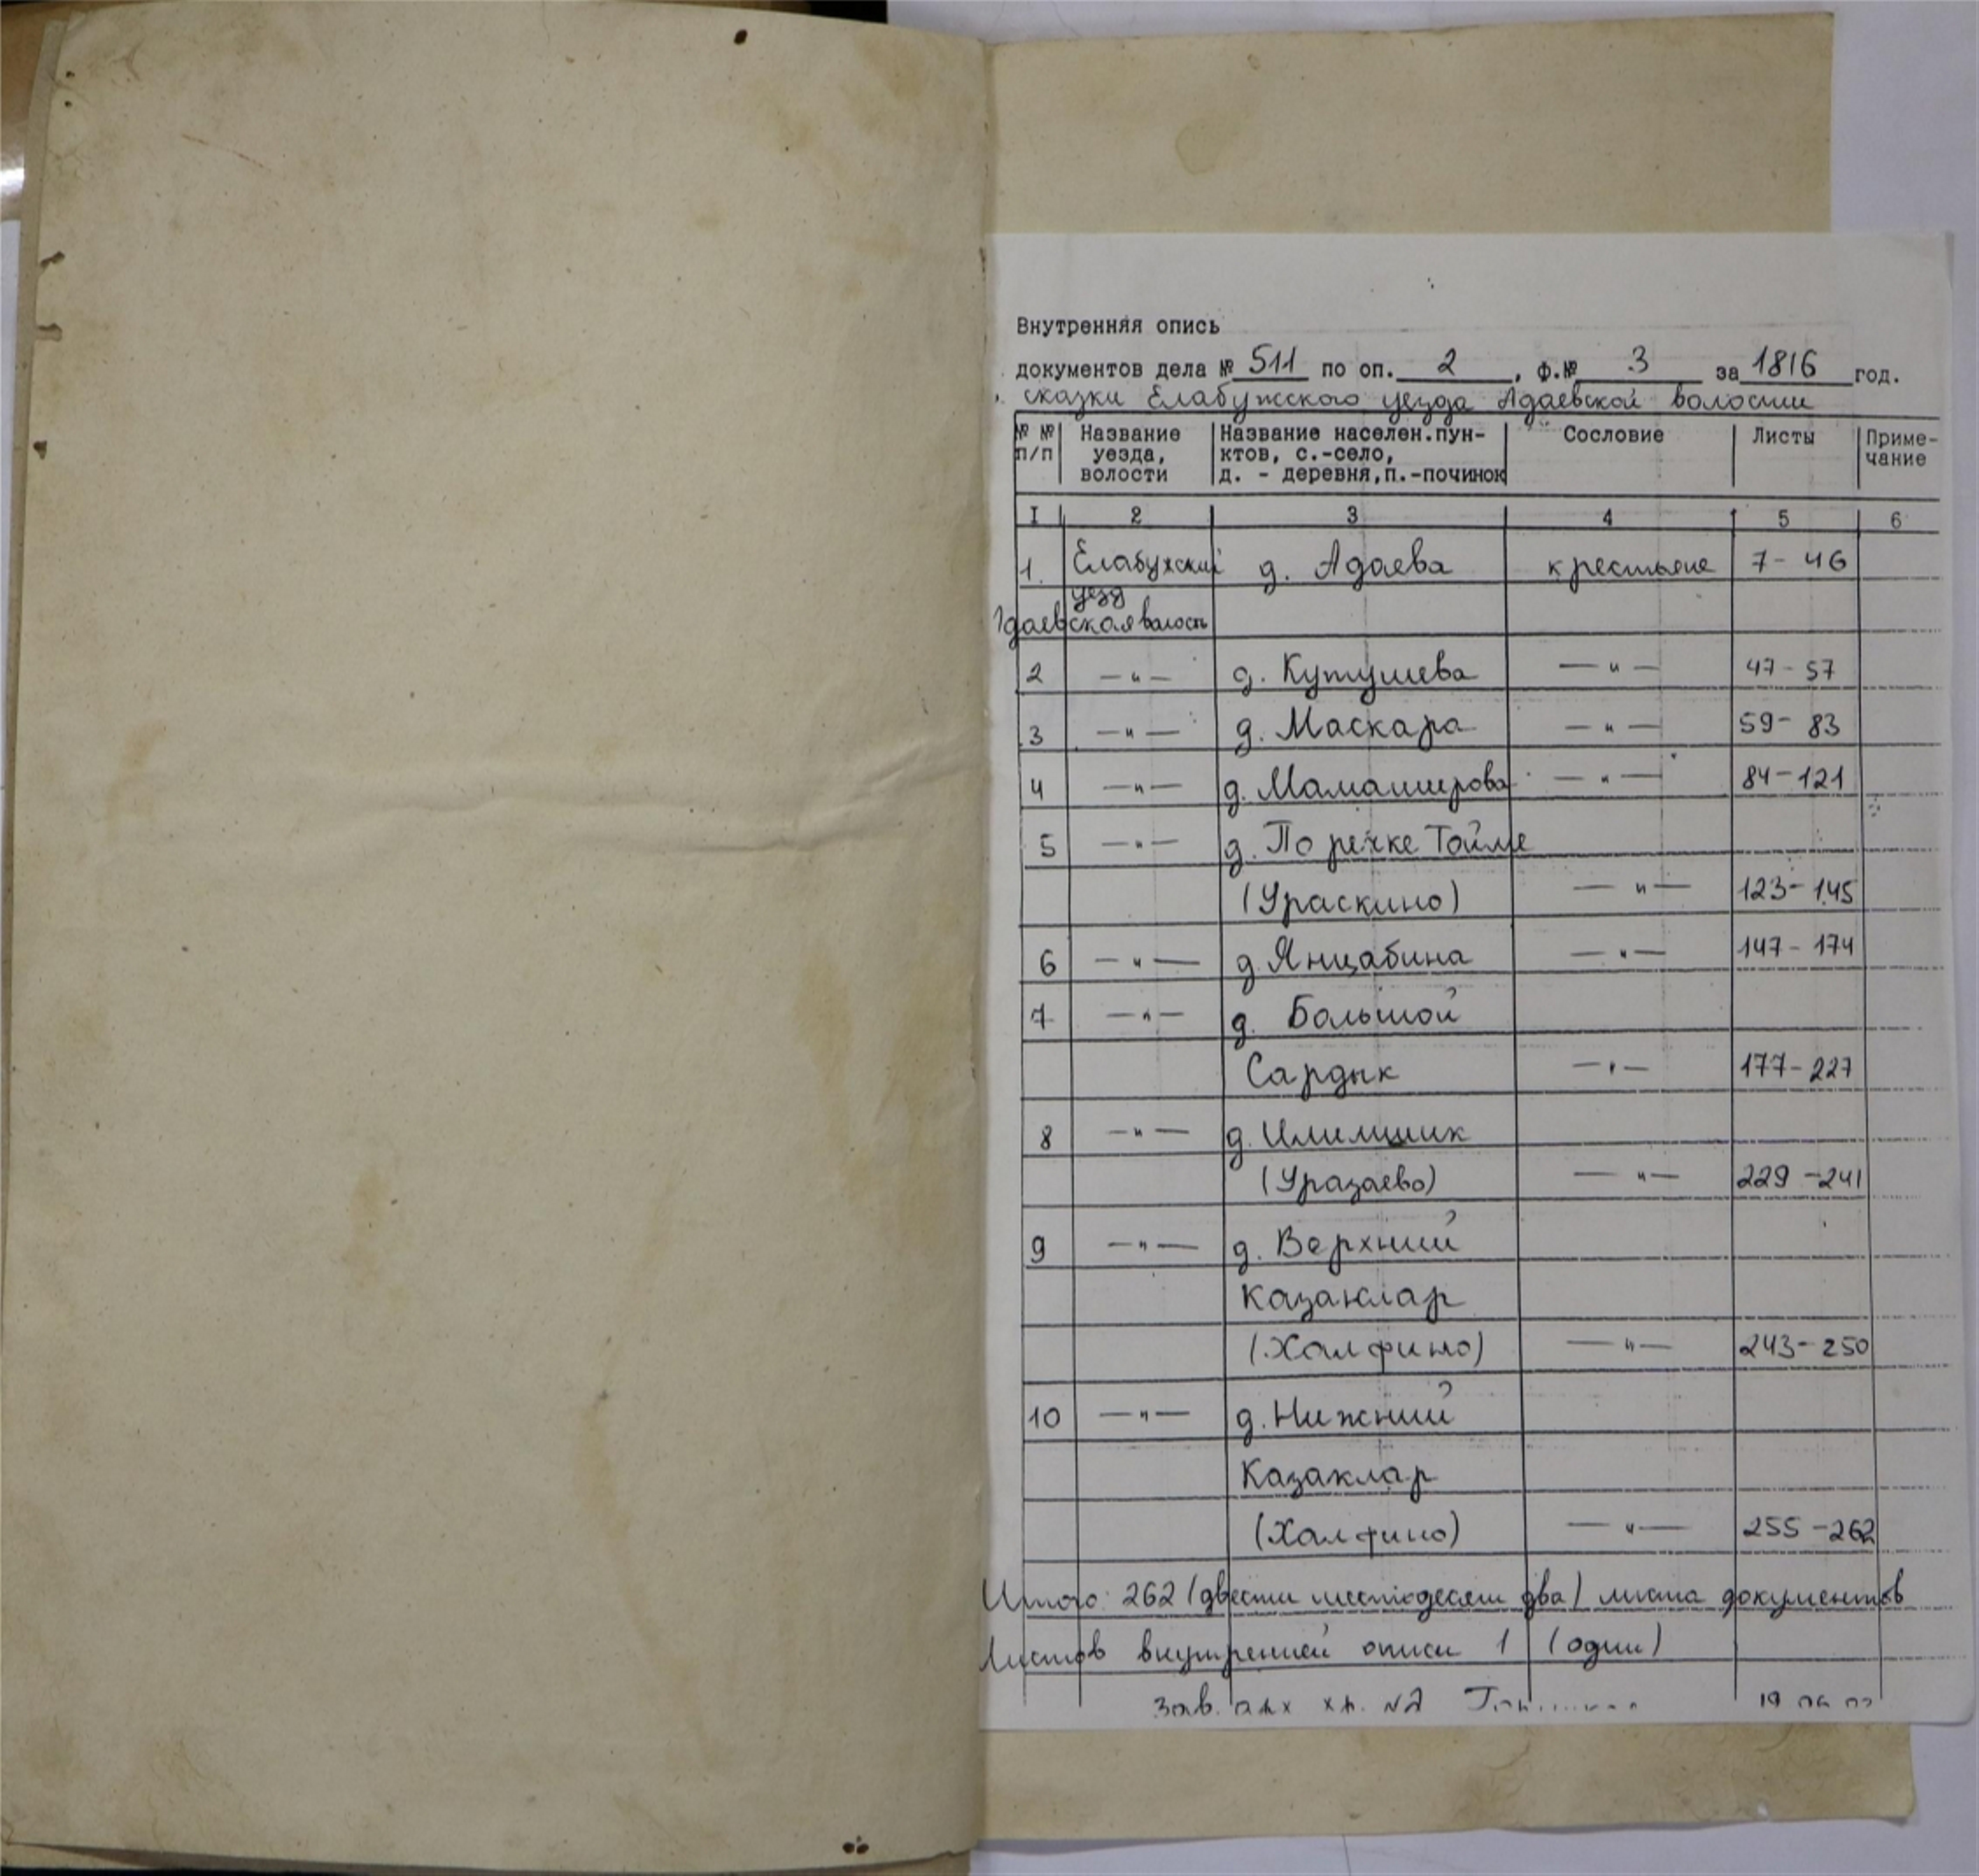 Внутренняя опись
документов дела № 511 по оп. 2, ф.№ 3 за 1816 год.
сказки Елабужского уезда Адаевской волости
№ № п/п Название уезда, волости Название населен.пунктов, с.-село, д. - деревня,п.-починок Сословие Листы Примечание
I 2 3 4 5 6
1. Елабужский д. Адаева крестьяне 7 - 46
уезд
Адаевская волость
2 —„— д. Кутушева —„— 47 - 57
3 —„— д. Маскара —„— 59 - 83
4 —„— д. Мамаширова —„— 84 - 121
5 —„— д. По речке Тойме
(Ураскино) —„— 123 - 145
6 —„— д. Янцабина —„— 147 - 174
7 —„— д. Большой
Сардык —„— 177 - 227
8 —„— д. Илимшик
(Уразаево) —„— 229 - 241
9 —„— д. Верхний
Казаклар
(Халфино) —„— 243 - 250
10 —„— д. Нижний
Казаклар
(Халфино) —„— 255 - 262
Итого: 262 (двести шестьдесят два) листа документов
Листов внутренней описи 1 (один)
Зав. арх хр. №2